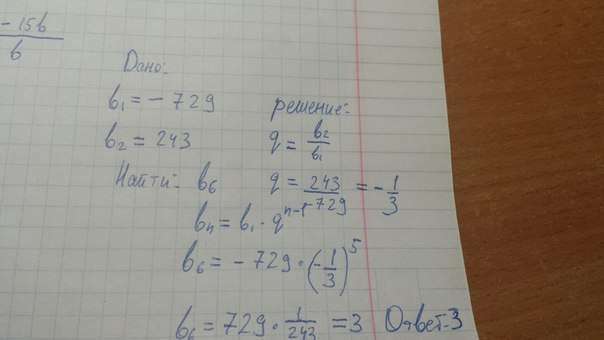 - 15b
b
Дано:
b₁ = - 729
b₂ = 243
Найти: b₆
решение:
q = b₂/b₁
q = 243/-729 = - 1/3
bₙ = b₁ · qⁿ⁻¹
b₆ = - 729 · (- 1/3)⁵
b₆ = 729 · 1/243 = 3 Ответ-3